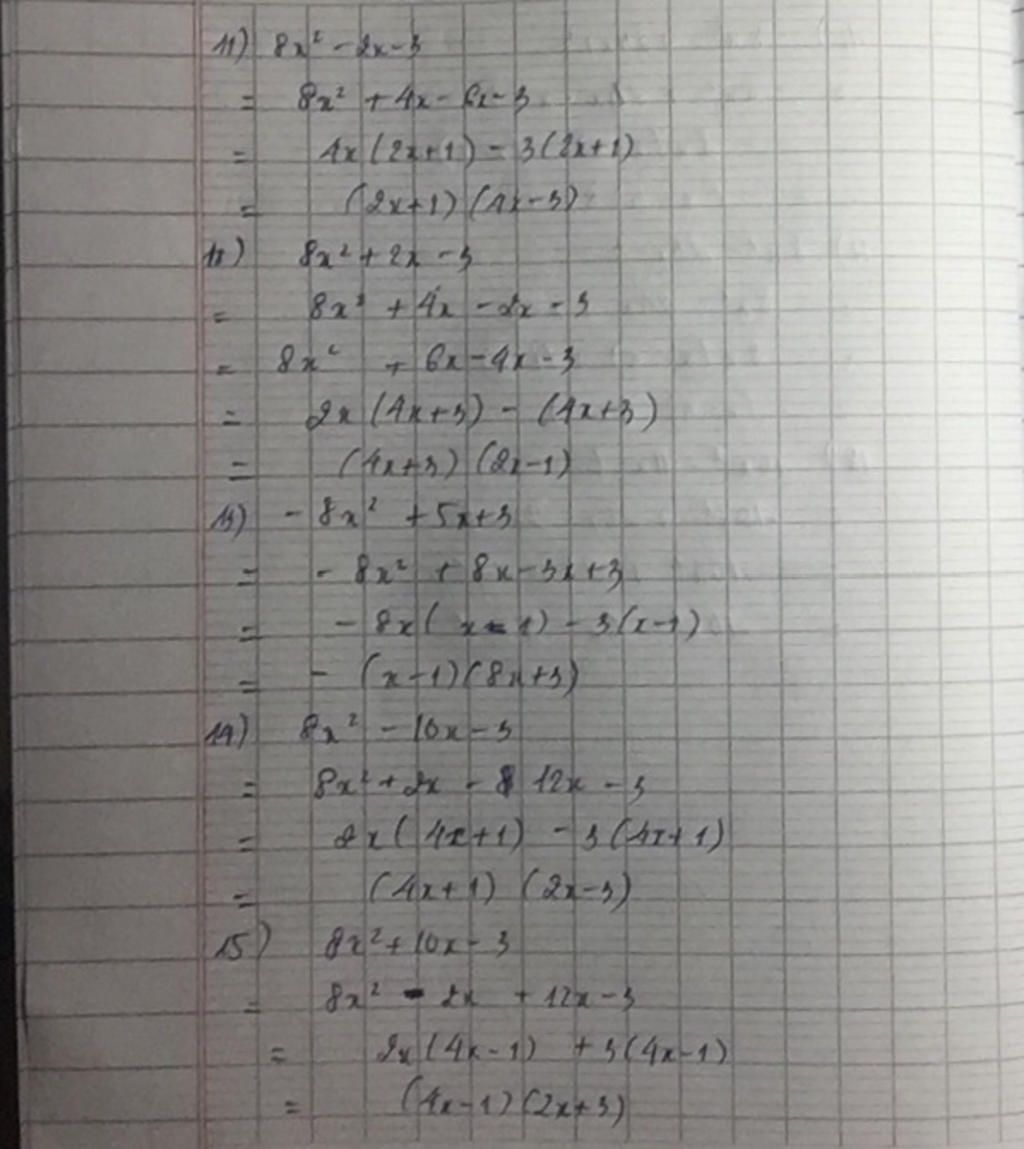 11) 8x² - 2x - 3
= 8x² + 4x - 6x - 3
= 4x (2x+1) - 3(2x+1)
= (2x+1) (4x-3)
12) 8x² + 2x - 3
= 8x² + 4x - 2x - 3
= 8x² + 6x - 4x - 3
= 2x (4x+3) - (4x+3)
= (4x+3) (2x-1)
13) - 8x² + 5x+3
= - 8x² + 8x - 3x + 3
= - 8x ( x - 1) - 3(x-1)
= - (x-1) (8x+3)
14) 8x² - 10x - 3
= 8x² + 2x - 12x - 3
= 2x ( 4x+1) - 3(4x+1)
= (4x+1) (2x-3)
15) 8x² + 10x - 3
= 8x² - 2x + 12x - 3
= 2x (4x-1) + 3(4x-1)
= (4x-1) (2x+3)